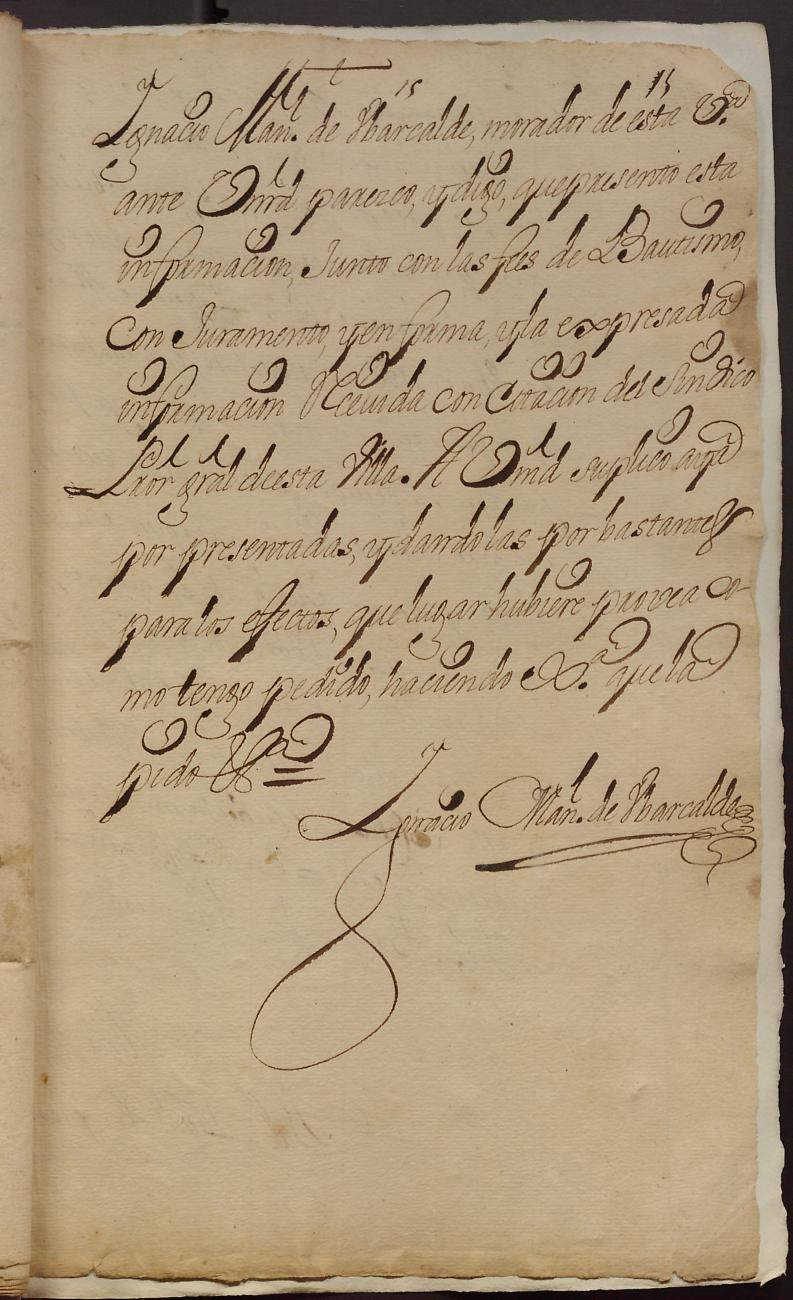 Ygnacio Man.l de Ybarcalde, morador de esta V.a
ante Vmd parezco, y digo, que presento esta
informacion, Junto con las fees de Bautismo,
con Juramento, y en forma, y la expresada
informacion Recevida con Citacion del Sindico
Pror gral de esta Villa. A Vmd suplico aya
por presentadas, y dandolas por bastantes
para los efectos, que lugar hubiere provea co-
mo tengo pedido, haciendo Xa que la
pido &a =
Ygnacio Man.l de Ybarcalde